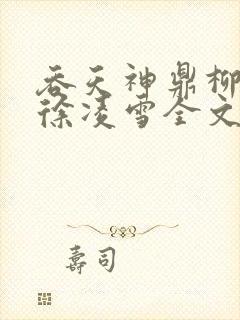 吞天神鼎柳
徐凌雪全文
壽司